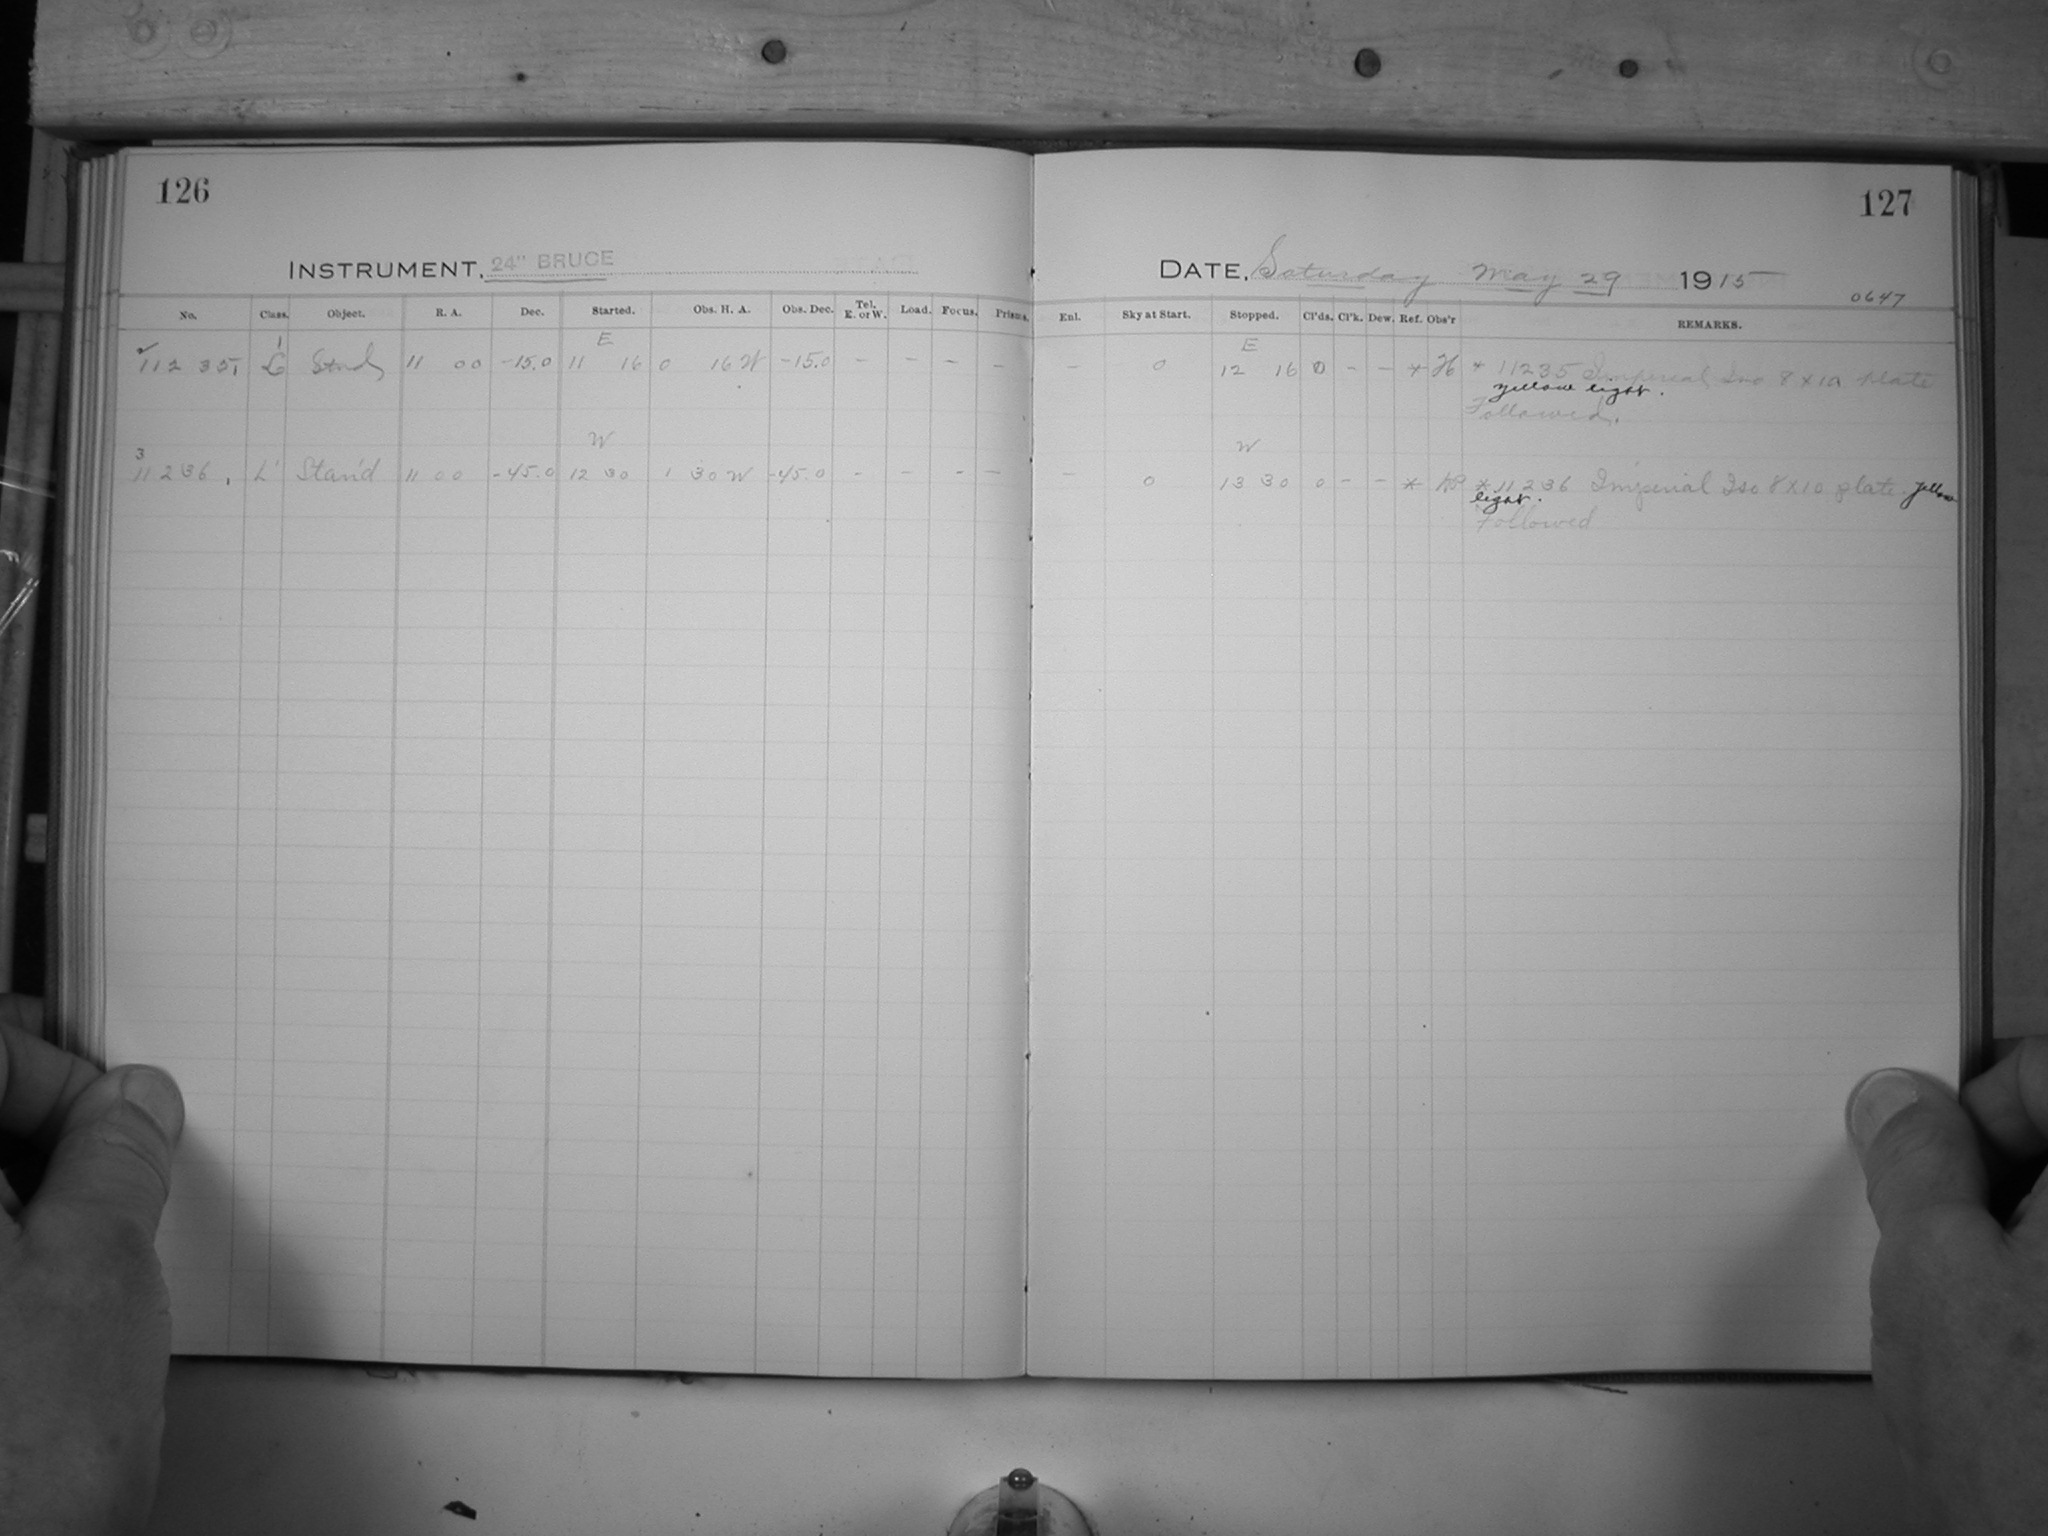 126
127
INSTRUMENT, 24" BRUCE
DATE, Saturday May 29 1915
0647
No. Class. Object. R. A. Dec. Started. Obs. H. A. Obs. Dec. Tel. E. or W. Load. Focus. Prisms. Enl. Sky at Start. Stopped. Cl'ds. Cl'k. Dew. Ref. Obs'r REMARKS.
1 E E
11235, L Stnd 11 00 -15.0 11 16 0 16 W -15.0 - - - - - 0 12 16 0 - - * H * 11235 Imperial Iso 8 x 10 plate
yellow light.
Followed.
3 W W
11236, L' Stan'd 11 00 -45.0 12 30 1 30 W -45.0 - - - - - 0 13 30 0 - - * * 11236 Imperial Iso 8 X 10 plate yellow
light.
Followed